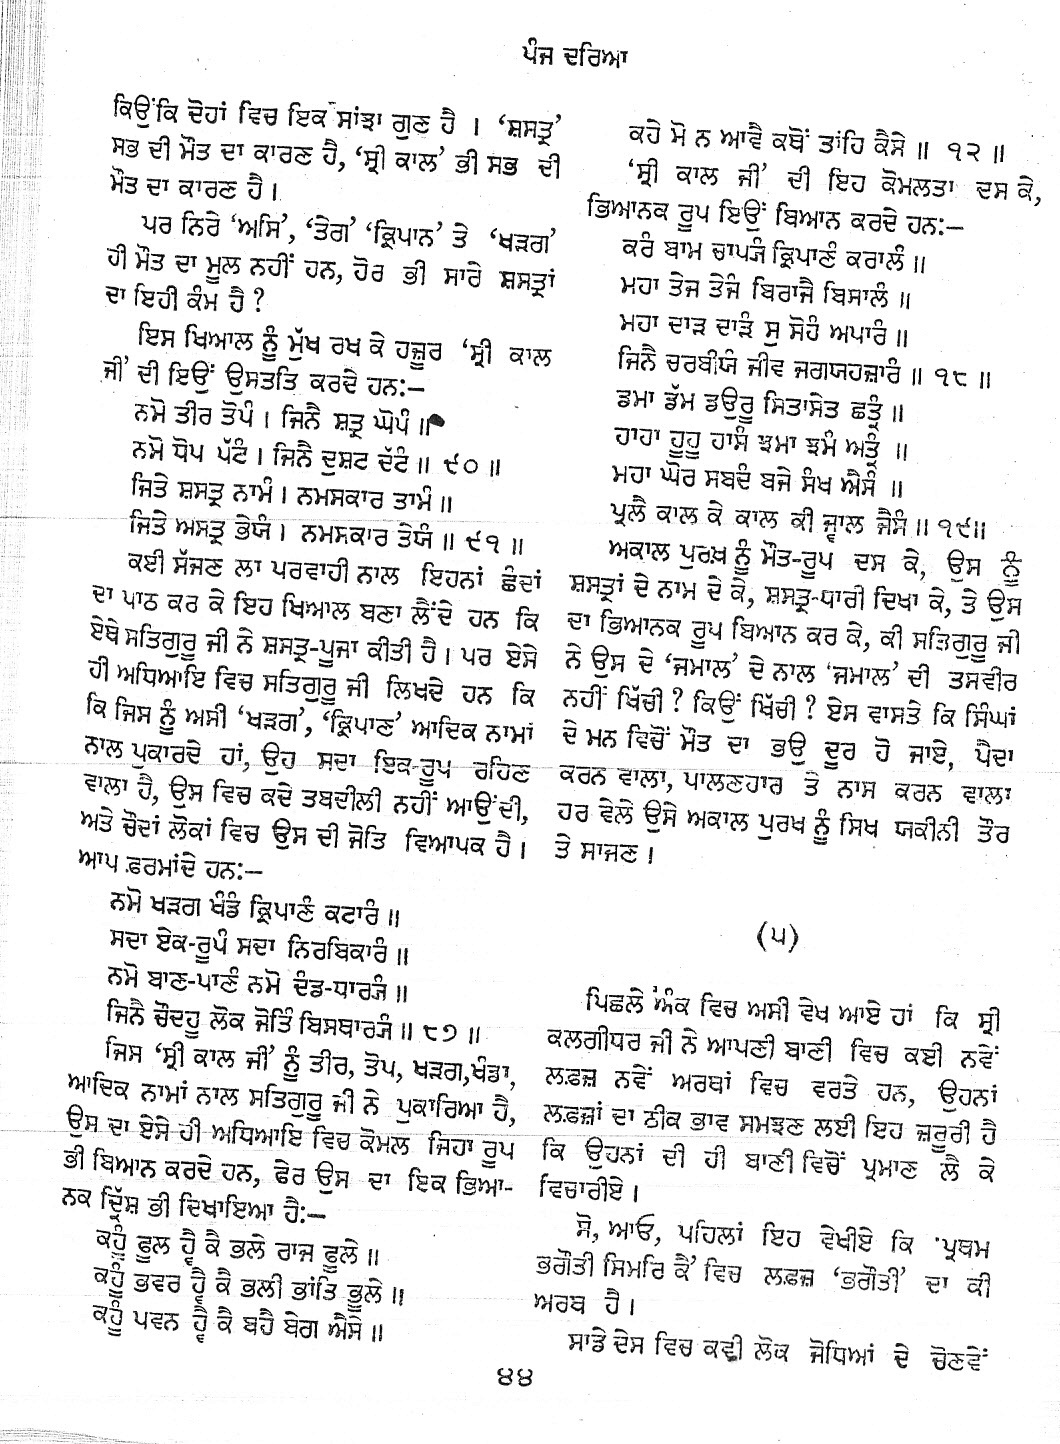 ਪੰਜ ਦਰਿਆ
ਕਿਉਂਕਿ ਦੋਹਾਂ ਵਿਚ ਇਕ ਸਾਂਝਾ ਗੁਣ ਹੈ । ‘ਸ਼ਸਤ੍ਰ’
ਸਭ ਦੀ ਮੌਤ ਦਾ ਕਾਰਣ ਹੈ, ‘ਸ੍ਰੀ ਕਾਲ’ ਭੀ ਸਭ ਦੀ
ਮੌਤ ਦਾ ਕਾਰਣ ਹੈ ।
ਪਰ ਨਿਰੇ ‘ਅਸਿ’, ‘ਤੇਗ’ ‘ਕ੍ਰਿਪਾਨ’ ਤੇ ‘ਖੜਗ’
ਹੀ ਮੌਤ ਦਾ ਮੂਲ ਨਹੀਂ ਹਨ, ਹੋਰ ਭੀ ਸਾਰੇ ਸ਼ਸਤ੍ਰਾਂ
ਦਾ ਇਹੀ ਕੰਮ ਹੈ ?
ਇਸ ਖਿਆਲ ਨੂੰ ਮੁੱਖ ਰਖ ਕੇ ਹਜ਼ੂਰ ‘ਸ੍ਰੀ ਕਾਲ
ਜੀ’ ਦੀ ਇਉਂ ਉਸਤਤਿ ਕਰਦੇ ਹਨ:—
ਨਮੋ ਤੀਰ ਤੋਪੰ । ਜਿਨੈ ਸ਼ਤ੍ਰ ਘੋਪੰ ॥
ਨਮੋ ਧੋਪ ਪੱਟੰ । ਜਿਨੈ ਦੁਸ਼ਟ ਦੱਟੰ ॥ ੯੦ ॥
ਜਿਤੇ ਸ਼ਸਤ੍ਰ ਨਾਮੰ । ਨਮਸਕਾਰ ਤਾਮੰ ॥
ਜਿਤੇ ਅਸਤ੍ਰ ਭੇਯੰ । ਨਮਸਕਾਰ ਤੇਯੰ ॥ ੯੧ ॥
ਕਈ ਸੱਜਣ ਲਾ ਪਰਵਾਹੀ ਨਾਲ ਇਹਨਾਂ ਛੰਦਾਂ
ਦਾ ਪਾਠ ਕਰ ਕੇ ਇਹ ਖਿਆਲ ਬਣਾ ਲੈਂਦੇ ਹਨ ਕਿ
ਏਥੇ ਸਤਿਗੁਰੂ ਜੀ ਨੇ ਸ਼ਸਤ੍ਰ-ਪੂਜਾ ਕੀਤੀ ਹੈ । ਪਰ ਏਸੇ
ਹੀ ਅਧਿਆਇ ਵਿਚ ਸਤਿਗੁਰੂ ਜੀ ਲਿਖਦੇ ਹਨ ਕਿ
ਕਿ ਜਿਸ ਨੂੰ ਅਸੀ ‘ਖੜਗ’, ‘ਕ੍ਰਿਪਾਣ’ ਆਦਿਕ ਨਾਮਾਂ
ਨਾਲ ਪੁਕਾਰਦੇ ਹਾਂ, ਉਹ ਸਦਾ ਇਕ-ਰੂਪ ਰਹਿਣ
ਵਾਲਾ ਹੈ, ਉਸ ਵਿਚ ਕਦੇ ਤਬਦੀਲੀ ਨਹੀਂ ਆਉਂਦੀ,
ਅਤੇ ਚੌਦਾਂ ਲੋਕਾਂ ਵਿਚ ਉਸ ਦੀ ਜੋਤਿ ਵਿਆਪਕ ਹੈ ।
ਆਪ ਫ਼ਰਮਾਂਦੇ ਹਨ:—
ਨਮੋ ਖੜਗ ਖੰਡੰ ਕ੍ਰਿਪਾਣੰ ਕਟਾਰੰ ॥
ਸਦਾ ਏਕ-ਰੂਪੰ ਸਦਾ ਨਿਰਬਿਕਾਰੰ ॥
ਨਮੋ ਬਾਣ-ਪਾਣੰ ਨਮੋ ਦੰਡ-ਧਾਰ੍ਯੰ ॥
ਜਿਨੈ ਚੌਦਹੂ ਲੋਕ ਜੋਤਿੰ ਬਿਸਥਾਰ੍ਯੰ ॥ ੮੭ ॥
ਜਿਸ ‘ਸ੍ਰੀ ਕਾਲ ਜੀ’ ਨੂੰ ਤੀਰ, ਤੋਪ, ਖੜਗ,ਖੰਡਾ,
ਆਦਿਕ ਨਾਮਾਂ ਨਾਲ ਸਤਿਗੁਰੂ ਜੀ ਨੇ ਪੁਕਾਰਿਆ ਹੈ,
ਉਸ ਦਾ ਏਸੇ ਹੀ ਅਧਿਆਇ ਵਿਚ ਕੋਮਲ ਜਿਹਾ ਰੂਪ
ਭੀ ਬਿਆਨ ਕਰਦੇ ਹਨ, ਫੇਰ ਉਸ ਦਾ ਇਕ ਭਿਆ-
ਨਕ ਦ੍ਰਿੱਸ਼ ਭੀ ਦਿਖਾਇਆ ਹੈ:—
ਕਹੂੰ ਫੂਲ ਹ੍ਵੈ ਕੈ ਭਲੇ ਰਾਜ ਫੂਲੇ ॥
ਕਹੂੰ ਭਵਰ ਹ੍ਵੈ ਕੈ ਭਲੀ ਭਾਂਤਿ ਭੂਲੇ ॥
ਕਹੂੰ ਪਵਨ ਹ੍ਵੈ ਕੈ ਬਹੈ ਬੇਗ ਐਸੇ ॥
ਕਹੇ ਮੋ ਨ ਆਵੈ ਕਥੋਂ ਤਾਂਹਿ ਕੈਸੇ ॥ ੧੨ ॥
‘ਸ੍ਰੀ ਕਾਲ ਜੀ’ ਦੀ ਇਹ ਕੋਮਲਤਾ ਦਸ ਕੇ,
ਭਿਆਨਕ ਰੂਪ ਇਉਂ ਬਿਆਨ ਕਰਦੇ ਹਨ:—
ਕਰੰ ਬਾਮ ਚਾਪ੍ਯੰ ਕ੍ਰਿਪਾਣੰ ਕਰਾਲੰ ॥
ਮਹਾ ਤੇਜ ਤੇਜੰ ਬਿਰਾਜੈ ਬਿਸਾਲੰ ॥
ਮਹਾ ਦਾੜ ਦਾੜੰ ਸੁ ਸੋਹੰ ਅਪਾਰੰ ॥
ਜਿਨੈ ਚਰਬੀਯੰ ਜੀਵ ਜਗਯਹਜ਼ਾਰੰ ॥ ੧੮ ॥
ਡਮਾ ਡੱਮ ਡਉਰੂ ਸਿਤਾਸੇਤ ਛਤ੍ਰੰ ॥
ਹਾਹਾ ਹੂਹੂ ਹਾਸੰ ਝਮਾ ਝਮੰ ਅਤ੍ਰੰ ॥
ਮਹਾ ਘੋਰ ਸਬਦੰ ਬਜੇ ਸੰਖ ਐਸੰ ॥
ਪ੍ਰਲੈ ਕਾਲ ਕੇ ਕਾਲ ਕੀ ਜ੍ਵਾਲ ਜੈਸੰ ॥ ੧੯॥
ਅਕਾਲ ਪੁਰਖ਼ ਨੂੰ ਮੌਤ-ਰੂਪ ਦਸ ਕੇ, ਉਸ ਨੂੰ
ਸ਼ਸਤ੍ਰਾਂ ਦੇ ਨਾਮ ਦੇ ਕੇ, ਸ਼ਸਤ੍ਰ-ਧਾਰੀ ਦਿਖਾ ਕੇ, ਤੇ ਉਸ
ਦਾ ਭਿਆਨਕ ਰੂਪ ਬਿਆਨ ਕਰ ਕੇ, ਕੀ ਸਤਿਗੁਰੂ ਜੀ
ਨੇ ਉਸ ਦੇ ‘ਜਮਾਲ’ ਦੇ ਨਾਲ ‘ਜਮਾਲ’ ਦੀ ਤਸਵੀਰ
ਨਹੀਂ ਖਿੱਚੀ ? ਕਿਉਂ ਖਿੱਚੀ ? ਏਸ ਵਾਸਤੇ ਕਿ ਸਿੰਘਾਂ
ਦੇ ਮਨ ਵਿਚੋਂ ਮੌਤ ਦਾ ਭਉ ਦੂਰ ਹੋ ਜਾਏ, ਪੈਦਾ
ਕਰਨ ਵਾਲਾ, ਪਾਲਣਹਾਰ ਤੇ ਨਾਸ ਕਰਨ ਵਾਲਾ
ਹਰ ਵੇਲੇ ਉਸੇ ਅਕਾਲ ਪੁਰਖ ਨੂੰ ਸਿਖ ਯਕੀਨੀ ਤੌਰ
ਤੇ ਸਾਜਣ ।
(੫)
ਪਿਛਲੇ ਅੰਕ ਵਿਚ ਅਸੀ ਵੇਖ ਆਏ ਹਾਂ ਕਿ ਸ੍ਰੀ
ਕਲਗੀਧਰ ਜੀ ਨੇ ਆਪਣੀ ਬਾਣੀ ਵਿਚ ਕਈ ਨਵੇਂ
ਲਫ਼ਜ਼ ਨਵੇਂ ਅਰਥਾਂ ਵਿਚ ਵਰਤੇ ਹਨ, ਉਹਨਾਂ
ਲਫ਼ਜ਼ਾਂ ਦਾ ਠੀਕ ਭਾਵ ਸਮਝਣ ਲਈ ਇਹ ਜ਼ਰੂਰੀ ਹੈ
ਕਿ ਉਹਨਾਂ ਦੀ ਹੀ ਬਾਣੀ ਵਿਚੋਂ ਪ੍ਰਮਾਣ ਲੈ ਕੇ
ਵਿਚਾਰੀਏ ।
ਸੋ, ਆਓ, ਪਹਿਲਾਂ ਇਹ ਵੇਖੀਏ ਕਿ ‘ਪ੍ਰਥਮ
ਭਗੌਤੀ ਸਿਮਰਿ ਕੈ’ ਵਿਚ ਲਫ਼ਜ਼ ‘ਭਗੌਤੀ’ ਦਾ ਕੀ
ਅਰਥ ਹੈ ।
ਸਾਡੇ ਦੇਸ ਵਿਚ ਕਵੀ ਲੋਕ ਜੋਧਿਆਂ ਦੇ ਚੋਣਵੇਂ
੪੪